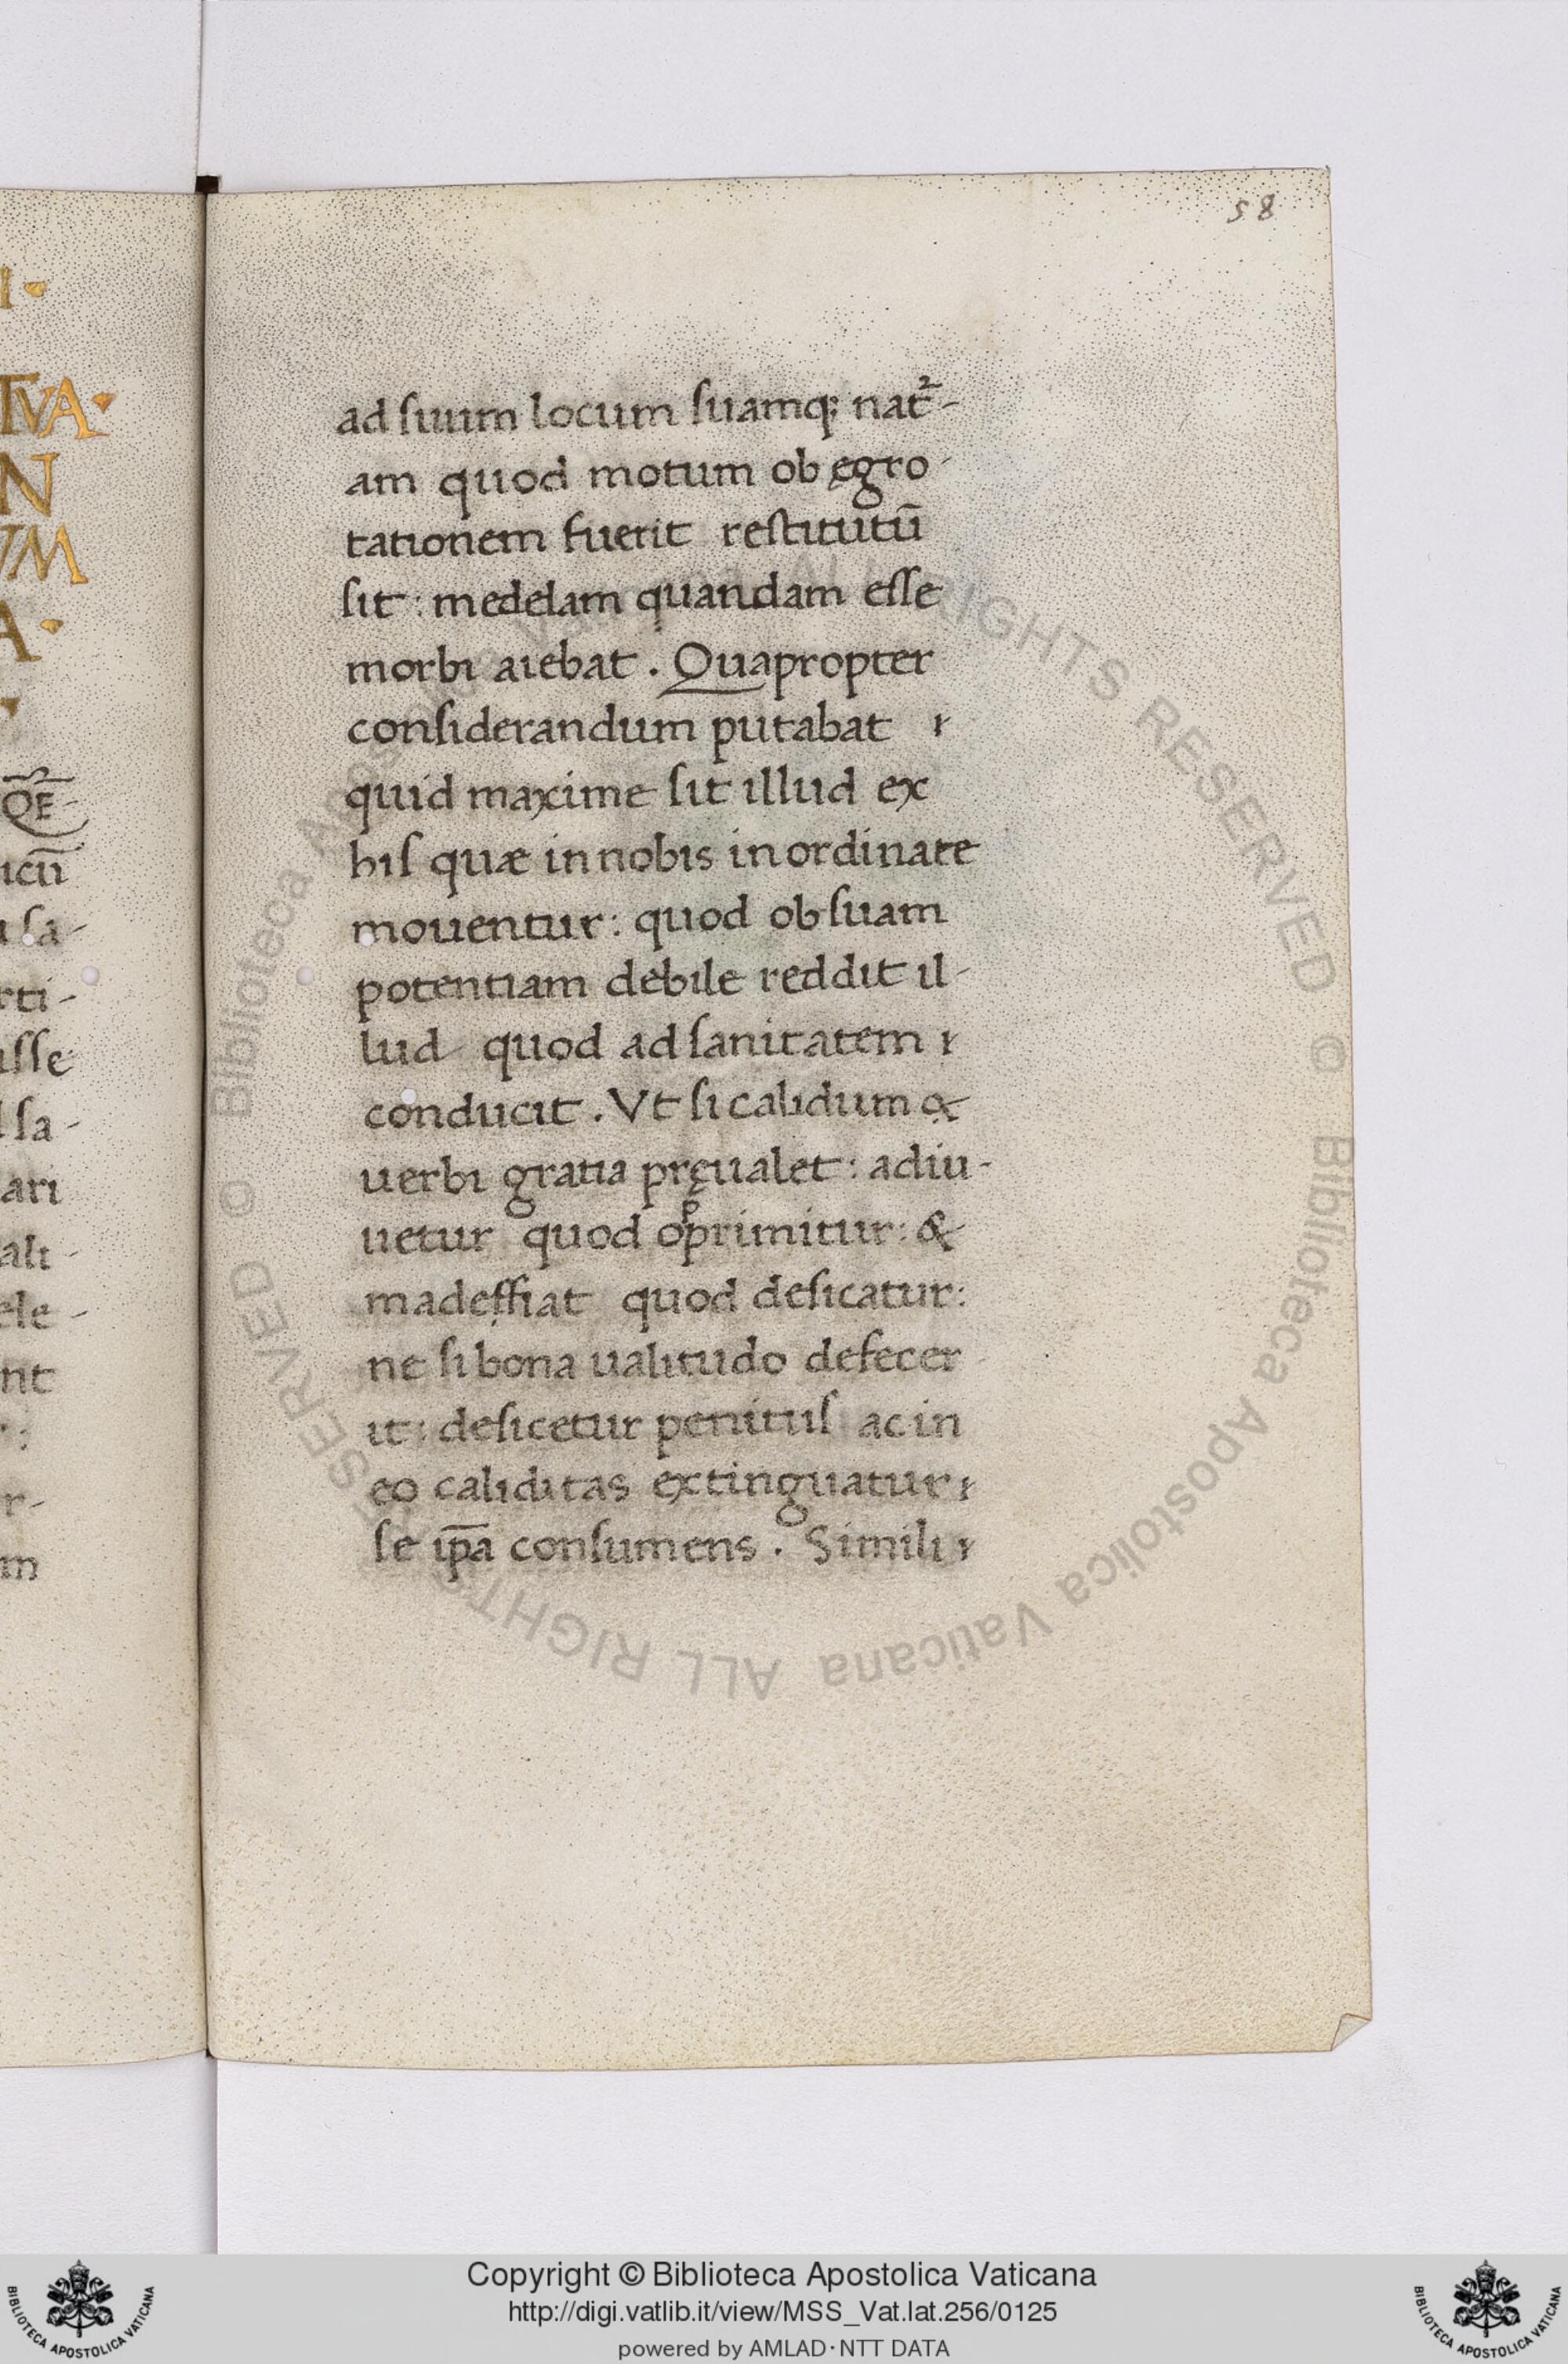 58
ad ſuum locum ſuamq; nat̄ᷣ-
am quod motum ob ęgro-
tationem fuerit reſtitutū
ſit : medelam quandam eſſe
morbi aiebat . Quapropter
conſiderandum putabat
quid maxime ſit illud ex
hiſ quæ in nobis inordinate
mouentur : quod ob ſuam
potentiam debile reddit il-
lud quod ad ſanitatem
conducit . Vt ſi calidum
uerbi gratia pręualet : adiu-
uetur quod opprimitur : &
madeffiat quod deſicatur :
ne ſi bona ualitudo defecer
it : deſicetur penituſ ac in
eo caliditas extinguatur
ſe ip̄a conſumens . Simili
I ·
TVA ·
N
VM
A ·
icū
ſa-
rti-
uſſe
ſa-
ari
ali-
ele-
nt
r-
m
© Biblioteca Apostolica Vaticana ALL RIGHTS RESERVED © Biblioteca Apostolica Vaticana ALL RIGHTS RESERVED
Copyright © Biblioteca Apostolica Vaticana
http://digi.vatlib.it/view/MSS_Vat.lat.256/0125
powered by AMLAD · NTT DATA
BIBLIOTECA APOSTOLICA VATICANA
BIBLIOTECA APOSTOLICA VATICANA